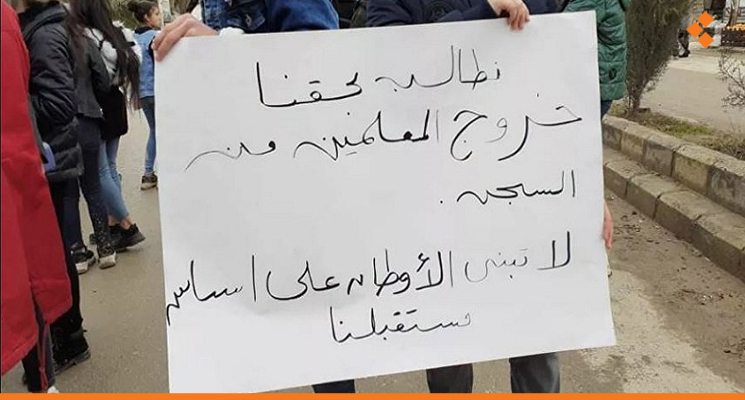 نطالب بحقنا
خروج المعلمين من
السجن .
لا تبنى الأوطان على اساس
مستقبلنا